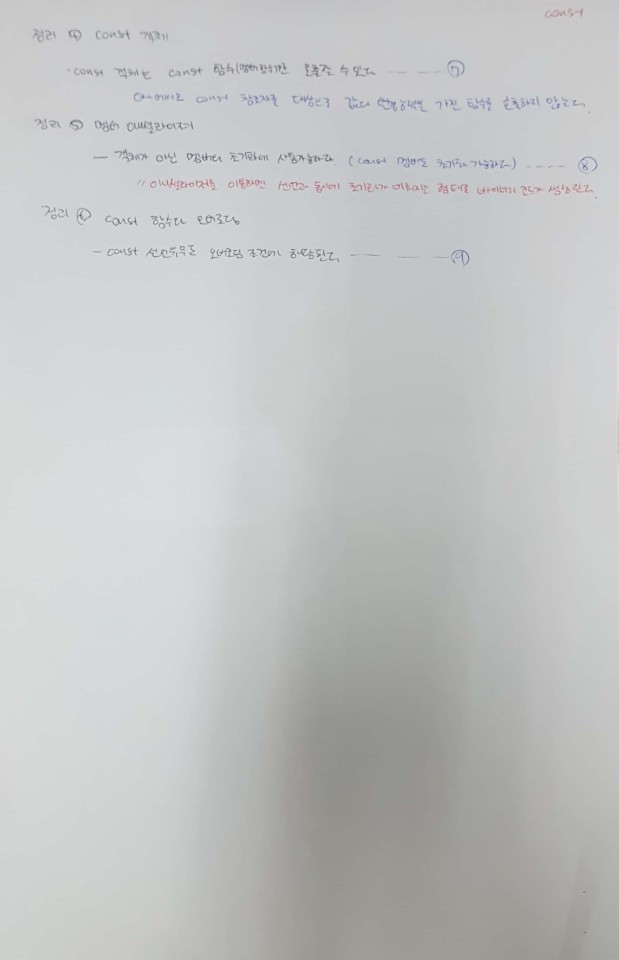 const
정리 ④ const 객체
- const 객체는 const 함수(멤버함수)만 호출할 수 있다 ---- ⑦
C++에서는 const 참조자를 대상으로 값의 변경 능력을 가진 함수를 호출하지 않는다.
정리 ⑤ 멤버 이니셜라이저
- 객체가 아닌 멤버의 초기화에 사용가능하다 (const 멤버도 초기화 가능하다) ---- ⑧
// 이니셜라이저를 이용하면 선언과 동시에 초기화가 이뤄지는 형태로 바이너리 코드가 생성된다.
정리 ⑥ const 함수와 오버로딩
- const 선언유무도 오버로딩 조건에 해당된다. ---- ⑨